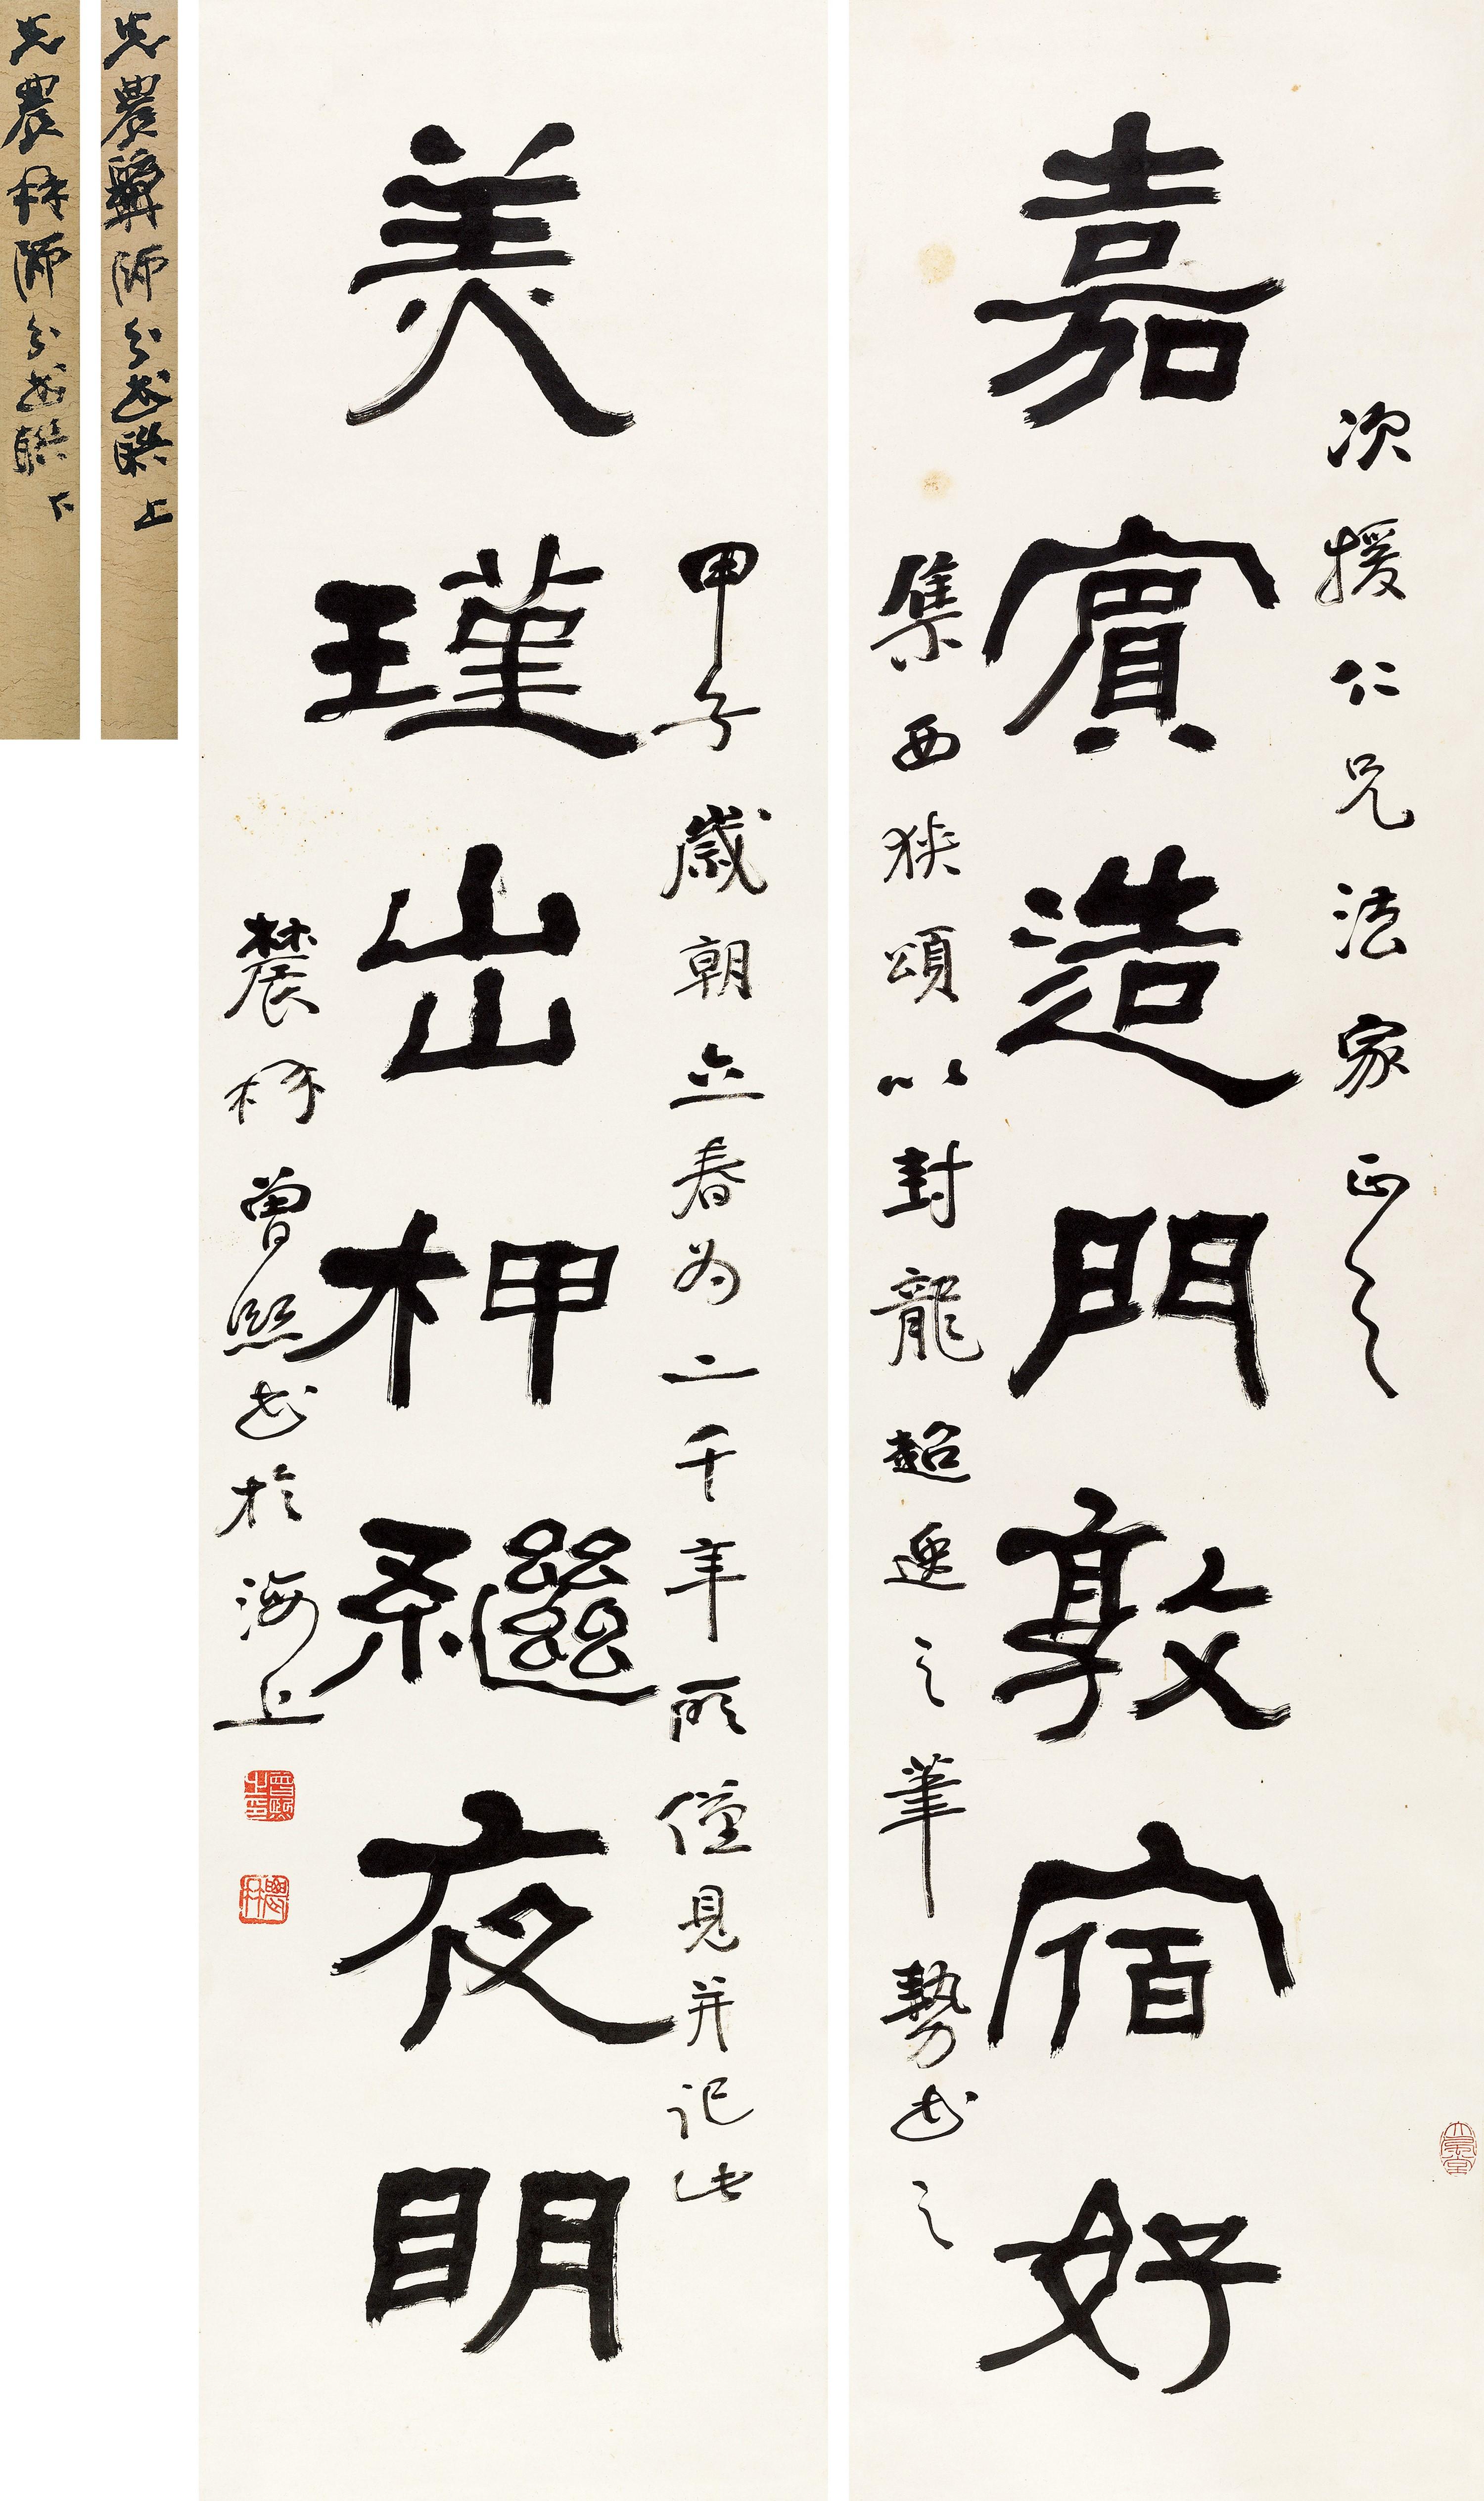 次援仁兄法家正之
嘉賓造門敦宿好
集西狹頌以封龍超逸之筆勢書之
大風堂
甲子歲朝立春為二千年所僅見并記此
美瑾出柙繼夜明
農髯曾熙書於海上
曾熙之印
農髯
先農髯師分書聯 上
先農髯師分書聯 下